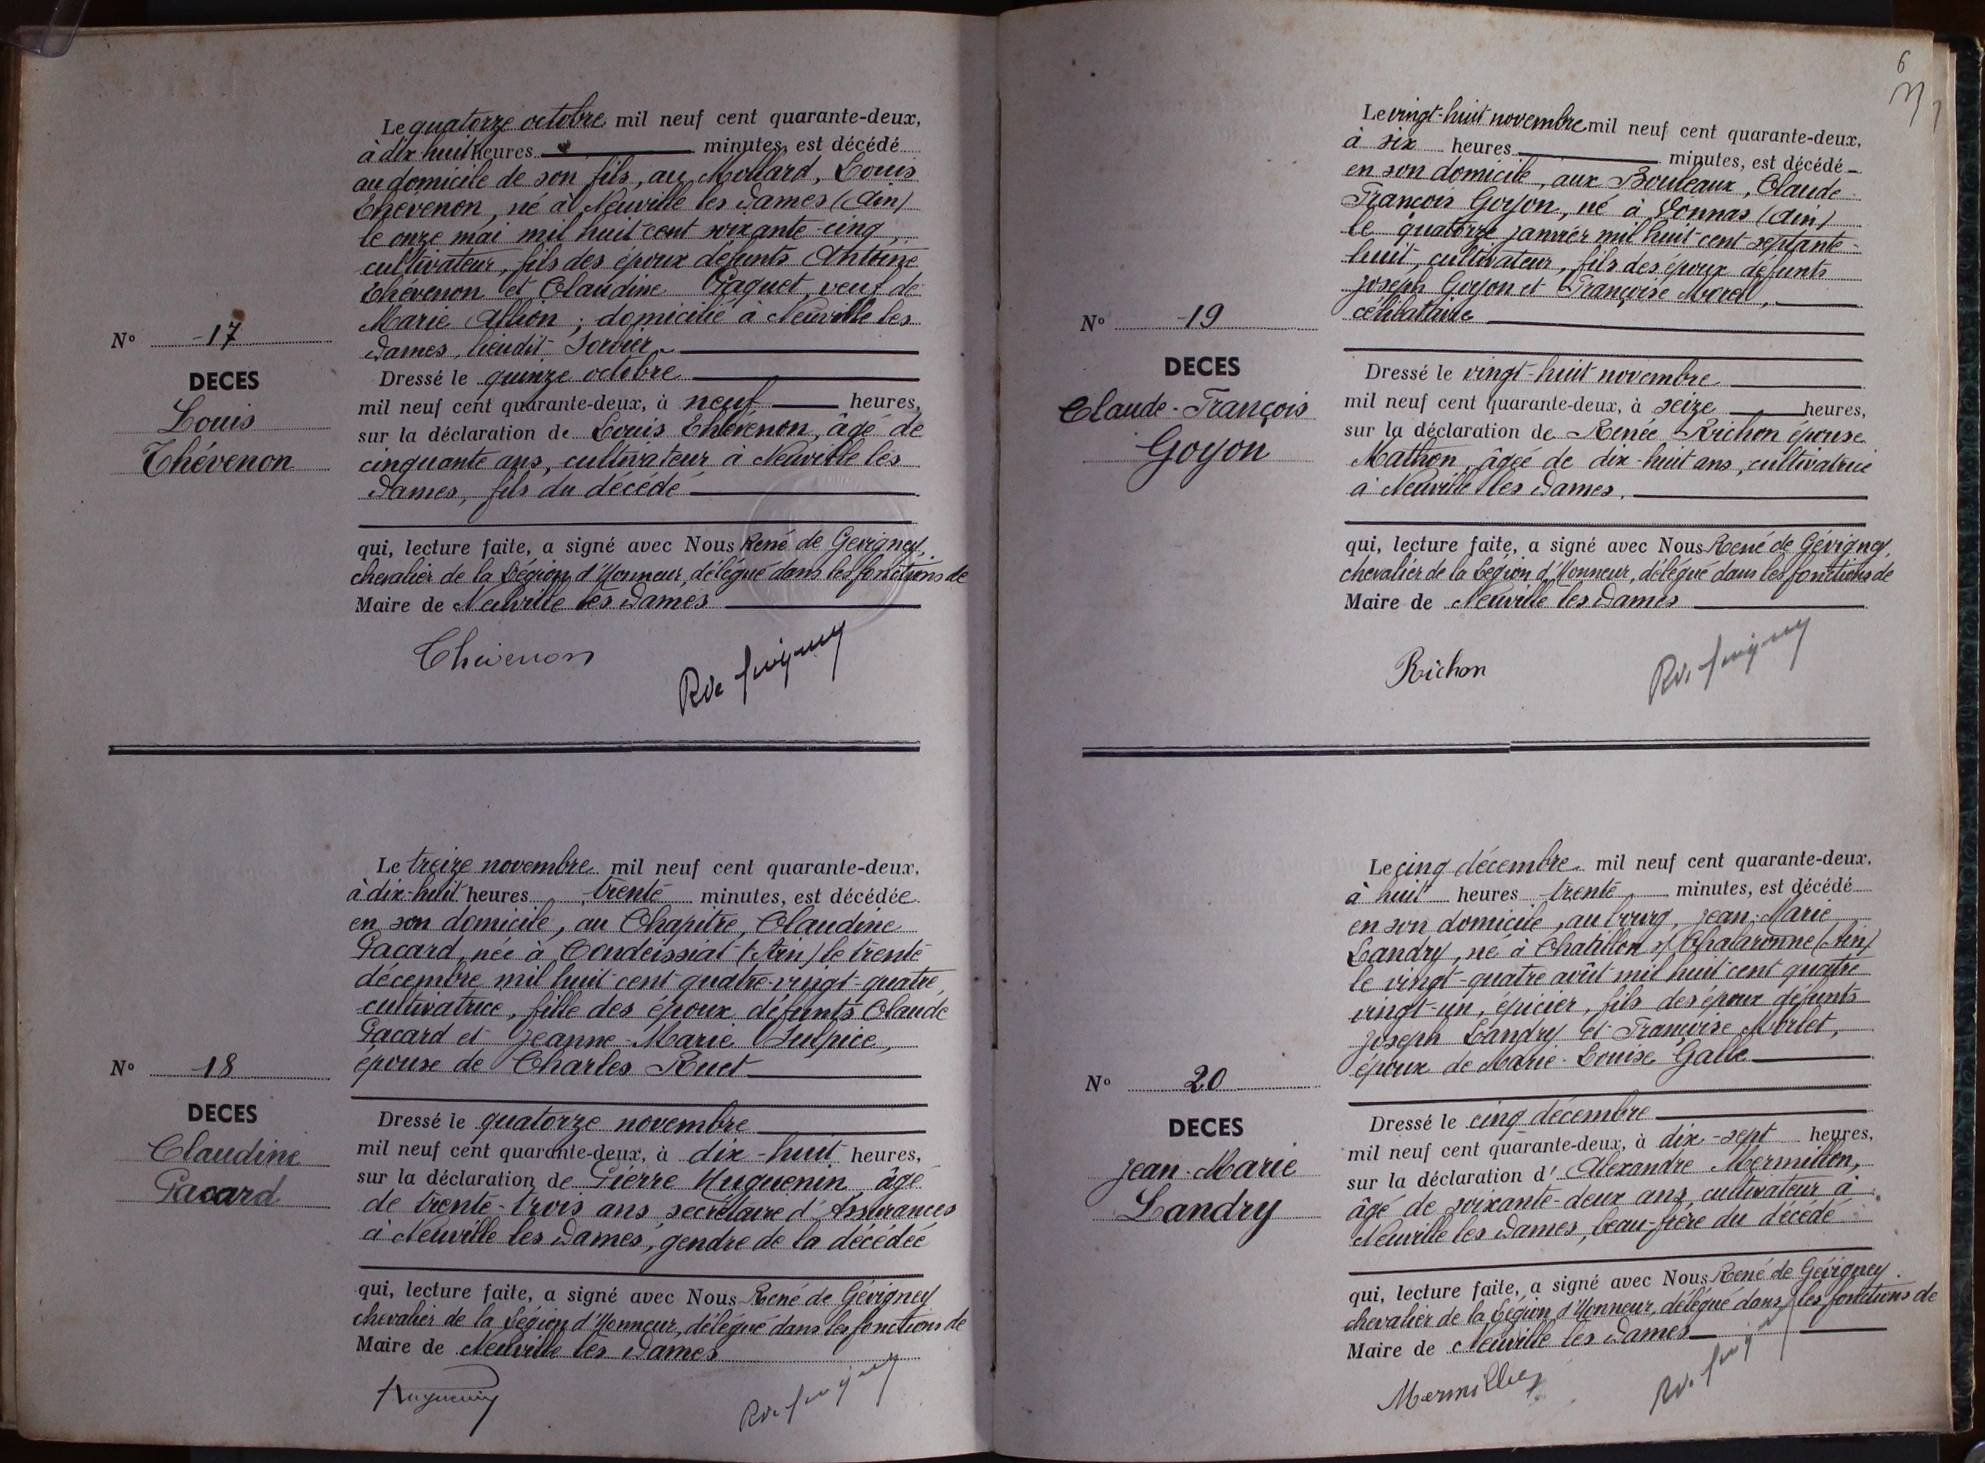 Le quatorze octobre mil neuf cent quarante-deux,
à dix huit heures minutes, est décédé
au domicile de son fils, au Mollard, Louis
Thévenon, né à Neuville les Dames (Ain)
le onze mai mil huit cent soixante-cinq,
cultivateur, fils des époux défunts Antoine
Thévenon et Claudine Paquet, veuf de
Marie ; domicilié à Neuville les
Dames, lieudit
Nº 17
DECES
Louis
Thévenon
Dressé le quinze octobre
mil neuf cent quarante-deux, à neuf heures,
sur la déclaration de Louis Thévenon, âgé de
cinquante ans, cultivateur à Neuville les
Dames, fils du décédé
qui, lecture faite, a signé avec Nous René de Gévigney,
chevalier de la Légion d'Honneur, délégué dans les fonctions de
Maire de Neuville les Dames
Thévenon
Le treize novembre mil neuf cent quarante-deux,
à dix-huit heures trente minutes, est décédée
en son domicile, au Chapitre, Claudine
Pacard, née à Condeissiat (Ain) le trente
décembre mil huit cent quatre-vingt-quatre,
cultivatrice, fille des époux défunts Claude
Pacard et Jeanne-Marie Sulpice,
épouse de Charles Ruet
Nº 18
DECES
Claudine
Pacard
Dressé le quatorze novembre
mil neuf cent quarante-deux, à dix-huit heures,
sur la déclaration de Pierre Huguenin âgé
de trente-trois ans, secrétaire d'Assurances
à Neuville les Dames, gendre de la décédée
qui, lecture faite, a signé avec Nous René de Gévigney
chevalier de la Légion d'Honneur, délégué dans les fonctions de
Maire de Neuville les Dames
Huguenin
6
Le vingt-huit novembre mil neuf cent quarante-deux,
à six heures minutes, est décédé
en son domicile, aux Bouleaux, Claude
François Goyon, né à Vonnas (Ain)
le quatorze janvier mil huit cent septante-
huit, cultivateur, fils des époux défunts
Joseph Goyon et Françoise Morel,
célibataire
Nº 19
DECES
Claude-François
Goyon
Dressé le vingt-huit novembre
mil neuf cent quarante-deux, à seize heures,
sur la déclaration de Renée Richon épouse
Mathon, âgée de dix-huit ans, cultivatrice
à Neuville les Dames,
qui, lecture faite, a signé avec Nous René de Gévigney,
chevalier de la Légion d'Honneur, délégué dans les fonctions de
Maire de Neuville les Dames
Richon
Le cinq décembre mil neuf cent quarante-deux,
à huit heures trente minutes, est décédé
en son domicile, au bourg, Jean-Marie
Landry, né à Chatillon s/ Chalaronne (Ain)
le vingt-quatre août mil huit cent quatre
vingt-un, épicier, fils des époux défunts
Joseph Landry et Françoise Morlet,
époux de Marie-Louise Galle
Nº 20
DECES
Jean-Marie
Landry
Dressé le cinq décembre
mil neuf cent quarante-deux, à dix-sept heures,
sur la déclaration d' Alexandre Mermillon,
âgé de soixante-deux ans, cultivateur à
Neuville les Dames, beau-frère du décédé
qui, lecture faite, a signé avec Nous René de Gévigney
chevalier de la Légion d'Honneur, délégué dans les fonctions de
Maire de Neuville les Dames